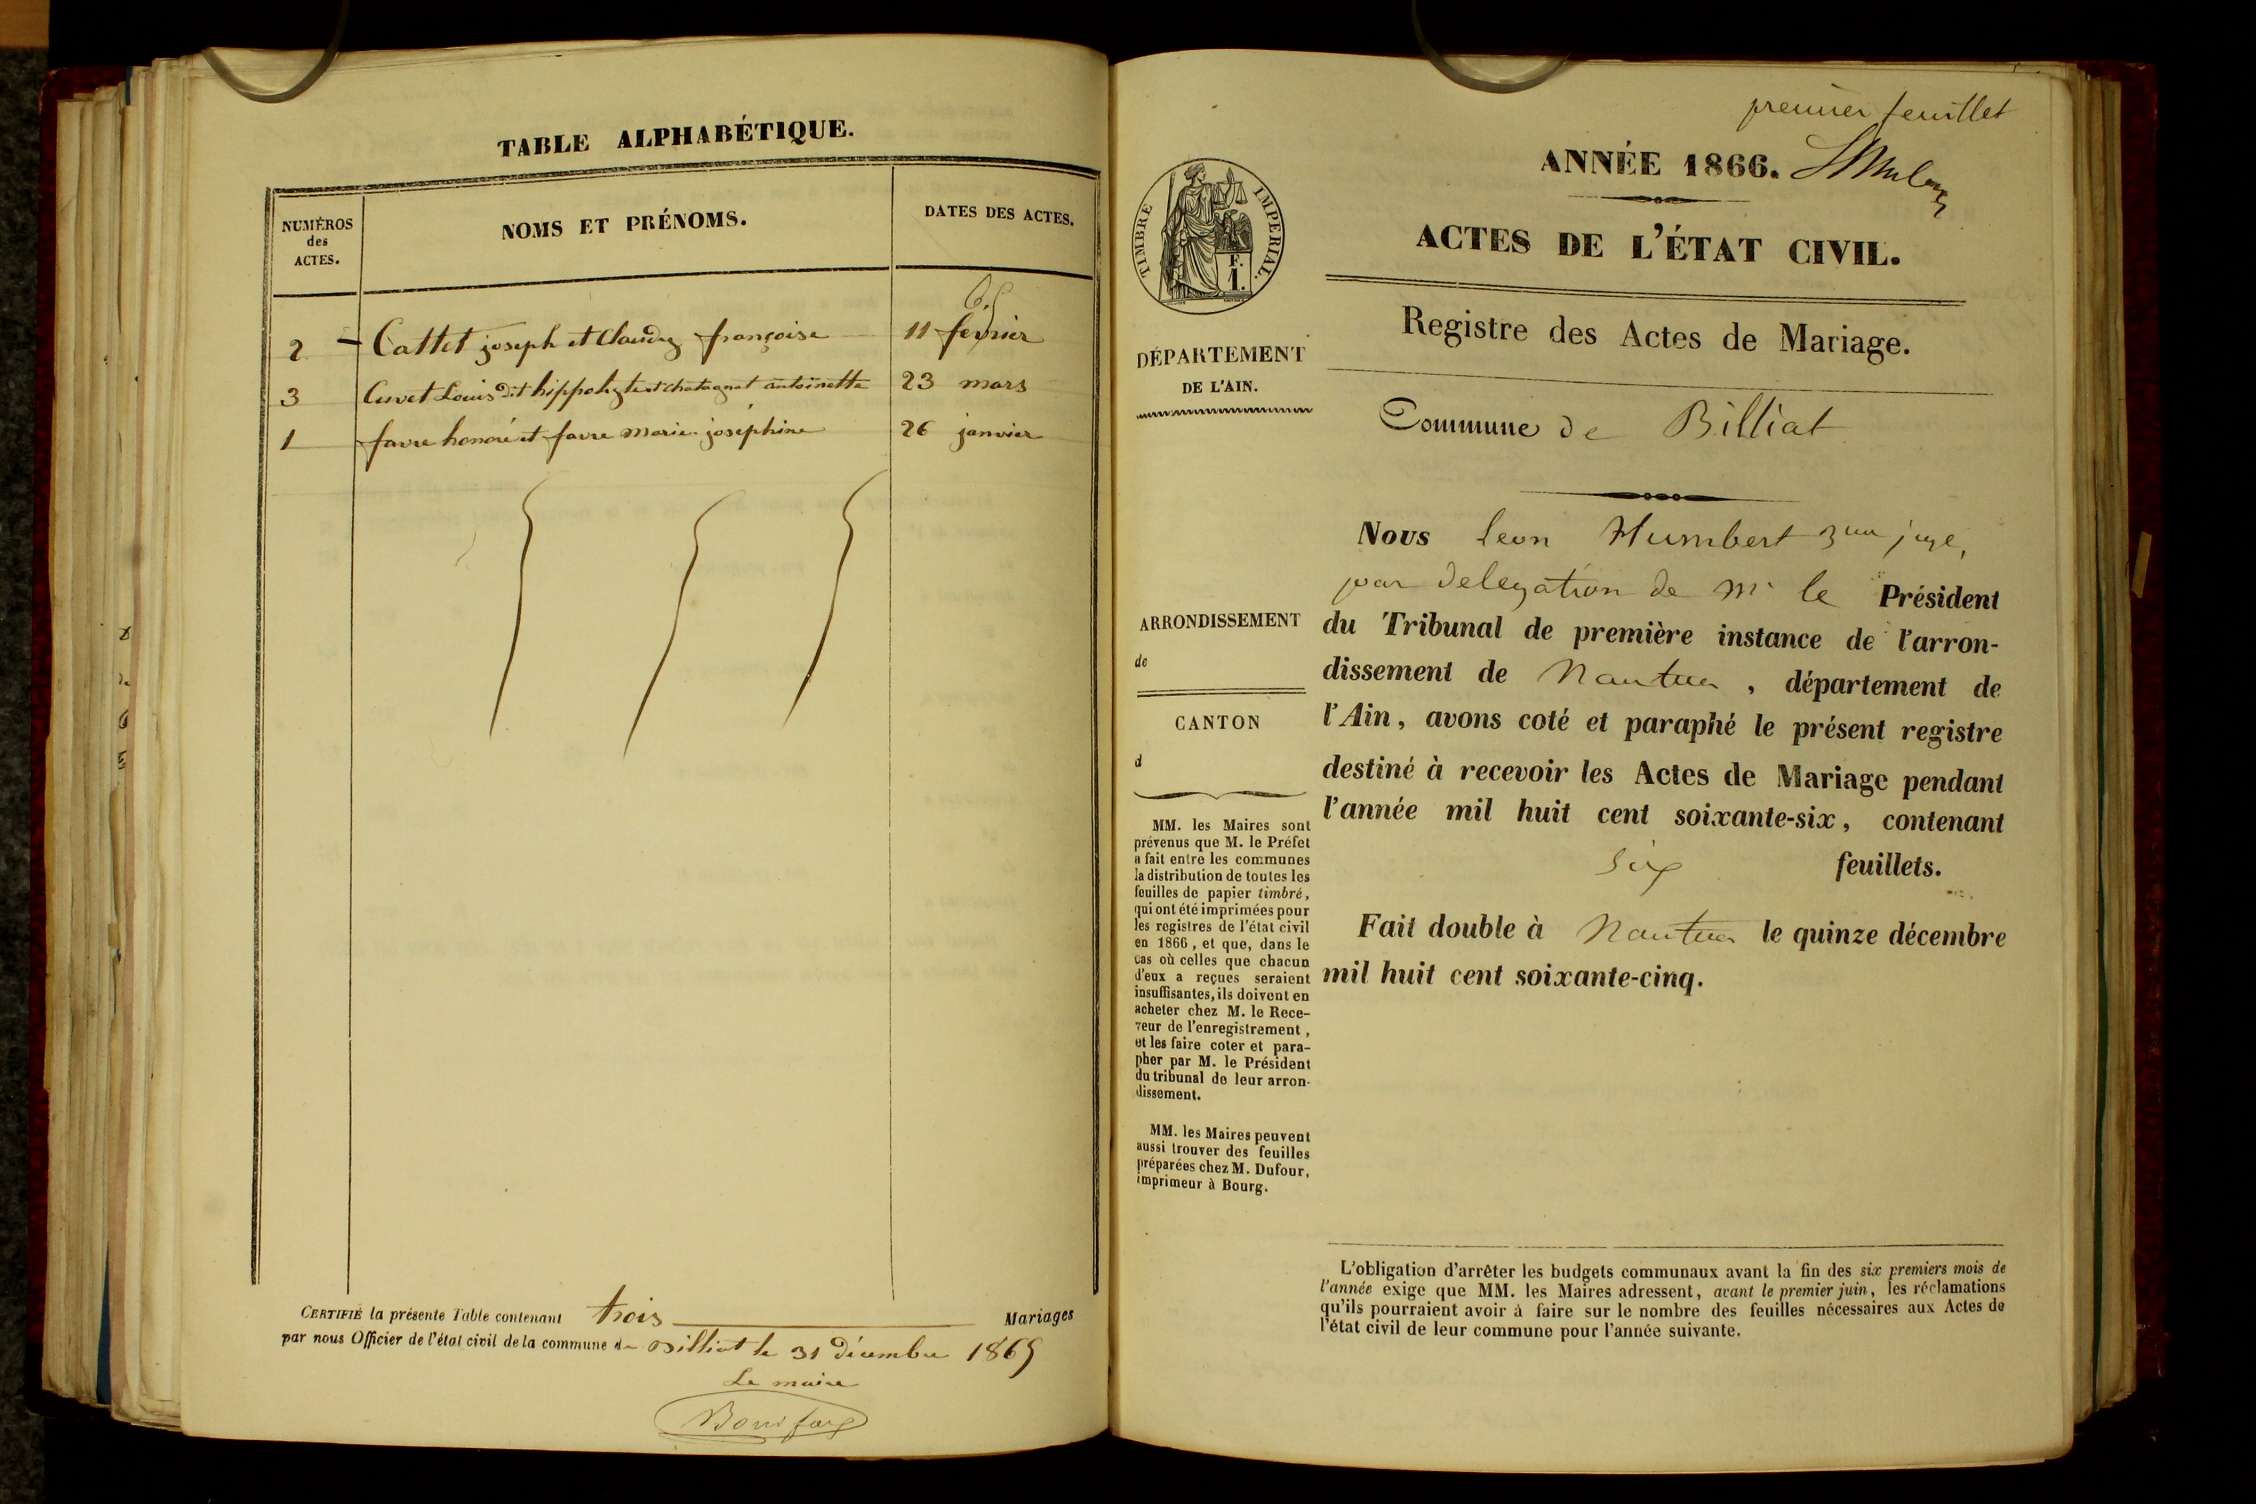 TABLE ALPHABÉTIQUE.
NUMÉROS
des
ACTES.
NOMS ET PRÉNOMS.
DATES DES ACTES.
65
2 Cattet joseph et Claudy françoise 11 fevrier
3 Cuvet Louis dit hippolyte et chatagnat antoinette 23 mars
1 favre honoré et favre marie joséphine 26 janvier
CERTIFIÉ la présente Table contenant trois Mariages
par nous Officier de l'état civil de la commune de Billiat le 31 décembre 1865
Le maire
premier feuillet
ANNÉE 1866.
ACTES DE L'ÉTAT CIVIL.
Registre des Actes de Mariage.
TIMBRE IMPERIAL.
F.
1.
DÉPARTEMENT
DE L'AIN.
Commune de Billiat
Nous Leon Humbert juge,
par delegation de Mr le Président
du Tribunal de première instance de l'arron-
dissement de Nantua, département de
l'Ain, avons coté et paraphé le présent registre
destiné à recevoir les Actes de Mariage pendant
l'année mil huit cent soixante-six, contenant
six feuillets.
Fait double à Nantua le quinze décembre
mil huit cent soixante-cinq.
ARRONDISSEMENT
de
CANTON
d
MM. les Maires sont
prévenus que M. le Préfet
a fait entre les communes
la distribution de toutes les
feuilles de papier timbré,
qui ont été imprimées pour
les registres de l'état civil
en 1866, et que, dans le
cas où celles que chacun
d'eux a reçues seraient
insuffisantes, ils doivent en
acheter chez M. le Rece-
veur de l'enregistrement,
et les faire coter et para-
pher par M. le Président
du tribunal de leur arron-
dissement.
MM. les Maires peuvent
aussi trouver des feuilles
préparées chez M. Dufour,
imprimeur à Bourg.
L'obligation d'arrêter les budgets communaux avant la fin des six premiers mois de
l'année exige que MM. les Maires adressent, avant le premier juin, les réclamations
qu'ils pourraient avoir à faire sur le nombre des feuilles nécessaires aux Actes de
l'état civil de leur commune pour l'année suivante.